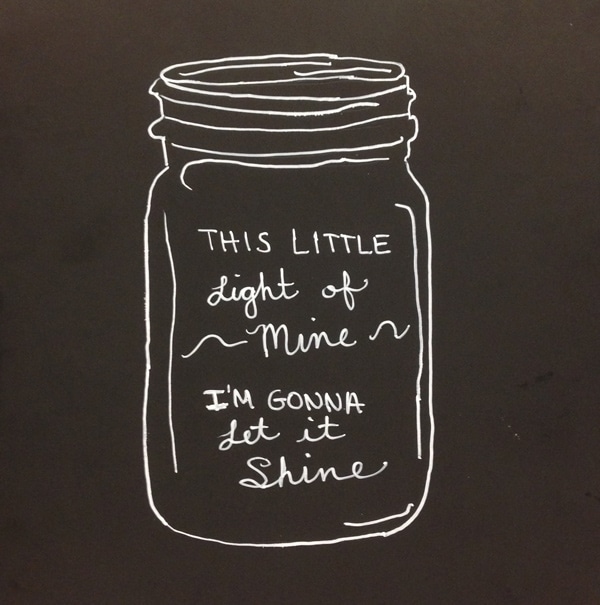 THIS LITTLE
Light of
~ Mine ~
I'M GONNA
Let it
Shine